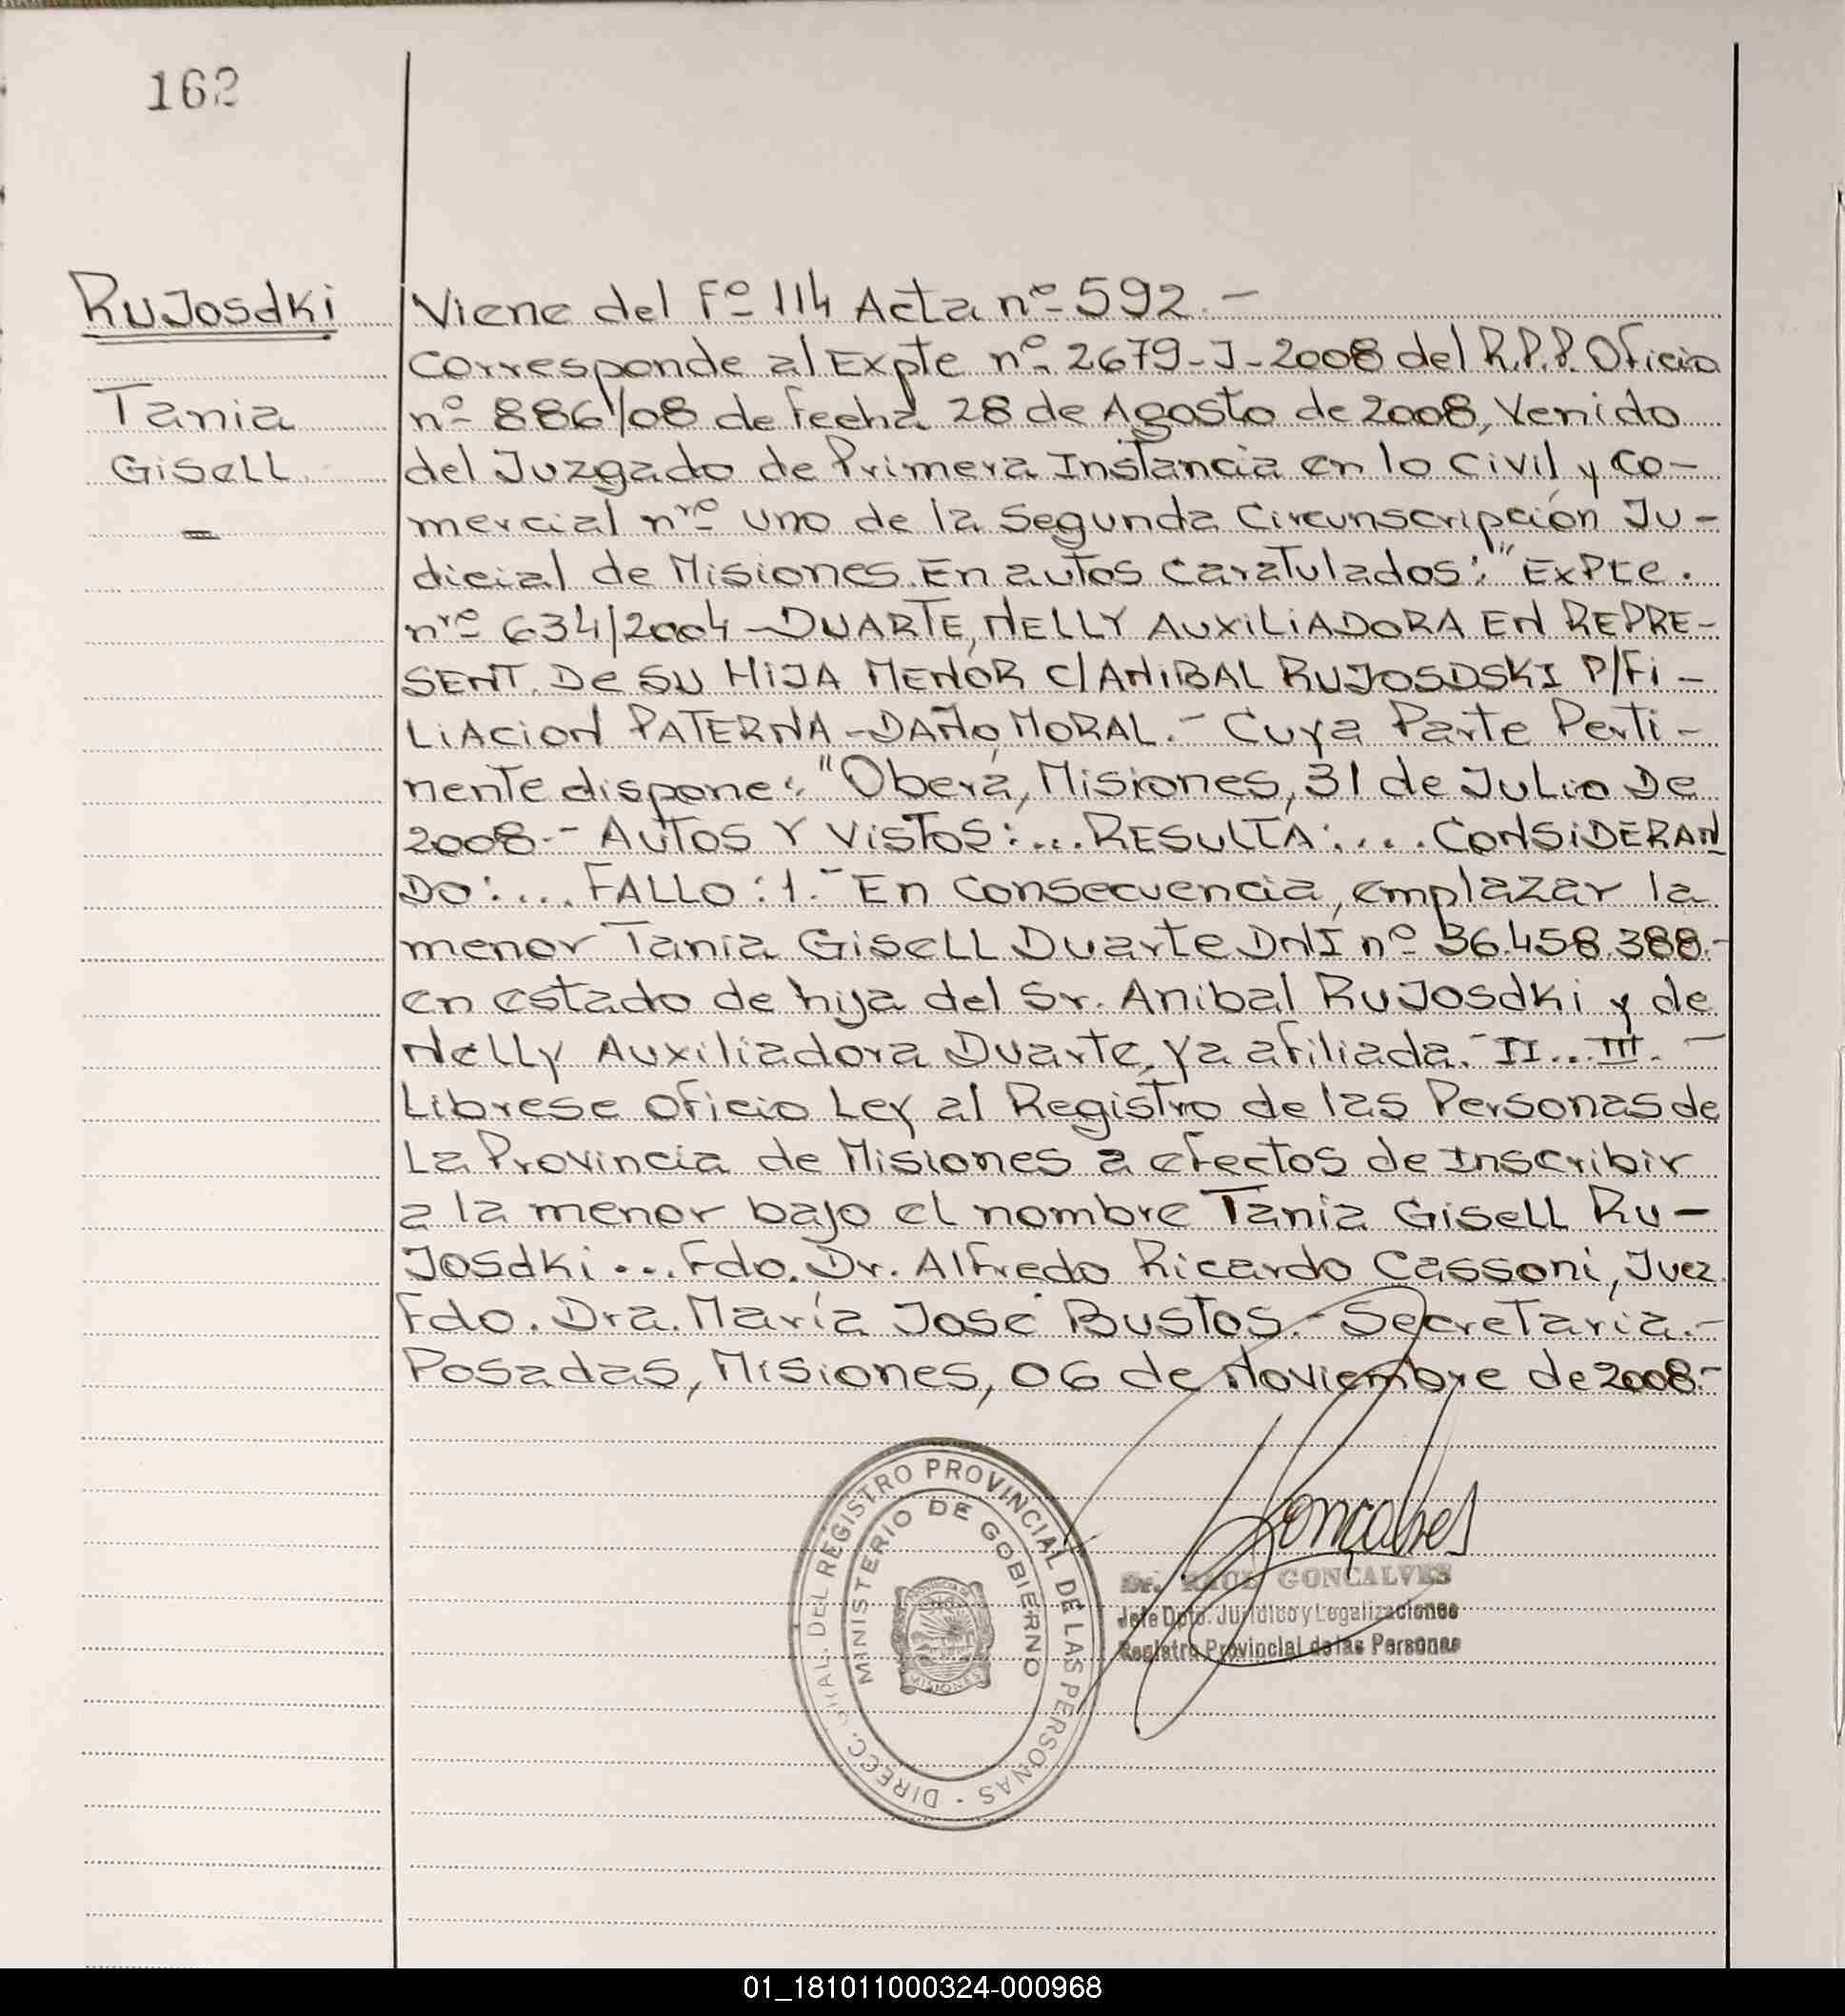 162
RuJosdki
Tania
Gisell
Viene del Fº 114 Acta nº 592.-
Corresponde al Expte nº 2679-J-2008 del R.P.P. Oficio
nº 886/08 de fecha 28 de Agosto de 2008, Venido
del Juzgado de Primera Instancia en lo Civil y Co-
mercial nrº uno de la Segunda Circunscripción Ju-
dicial de Misiones. En autos Caratulados: "Expte.
nrº 634/2004 - DUARTE, NELLY AUXILIADORA EN REPRE-
SENT. DE SU HIJA MENOR C/ ANIBAL RUJOSDSKI P/FI-
LIACION PATERNA - DAÑO MORAL.- Cuya Parte Perti-
nente dispone: "Oberá, Misiones, 31 de Julio De
2008.- AUTOS Y VISTOS:... RESULTA:.... CONSIDERAN
DO:.... FALLO: 1.- En Consecuencia, emplazar la
menor Tania Gisell Duarte DNI nº 36.458.388.-
en estado de hija del Sr. Anibal RuJosdki y de
Nelly Auxiliadora Duarte, Ya afiliada.- II... III.-
Librese Oficio Ley al Registro de las Personas de
La Provincia de Misiones a efectos de Inscribir
a la menor bajo el nombre Tania Gisell Ru-
Josdki... Fdo. Dr. Alfredo Ricardo Cassoni, Juez.
Fdo. Dra. María José Bustos.- Secretaria.-
Posadas, Misiones, 06 de Noviembre de 2008.-
DIRECC. GRAL. DEL REGISTRO PROVINCIAL DE LAS PERSONAS -
MINISTERIO DE GOBIERNO
PROVINCIA DE
MISIONES
Goncalves
Dr. RAUL GONCALVES
Jefe Dpto. Jurídico y Legalizaciones
Registro Provincial de las Personas
01_181011000324-000968